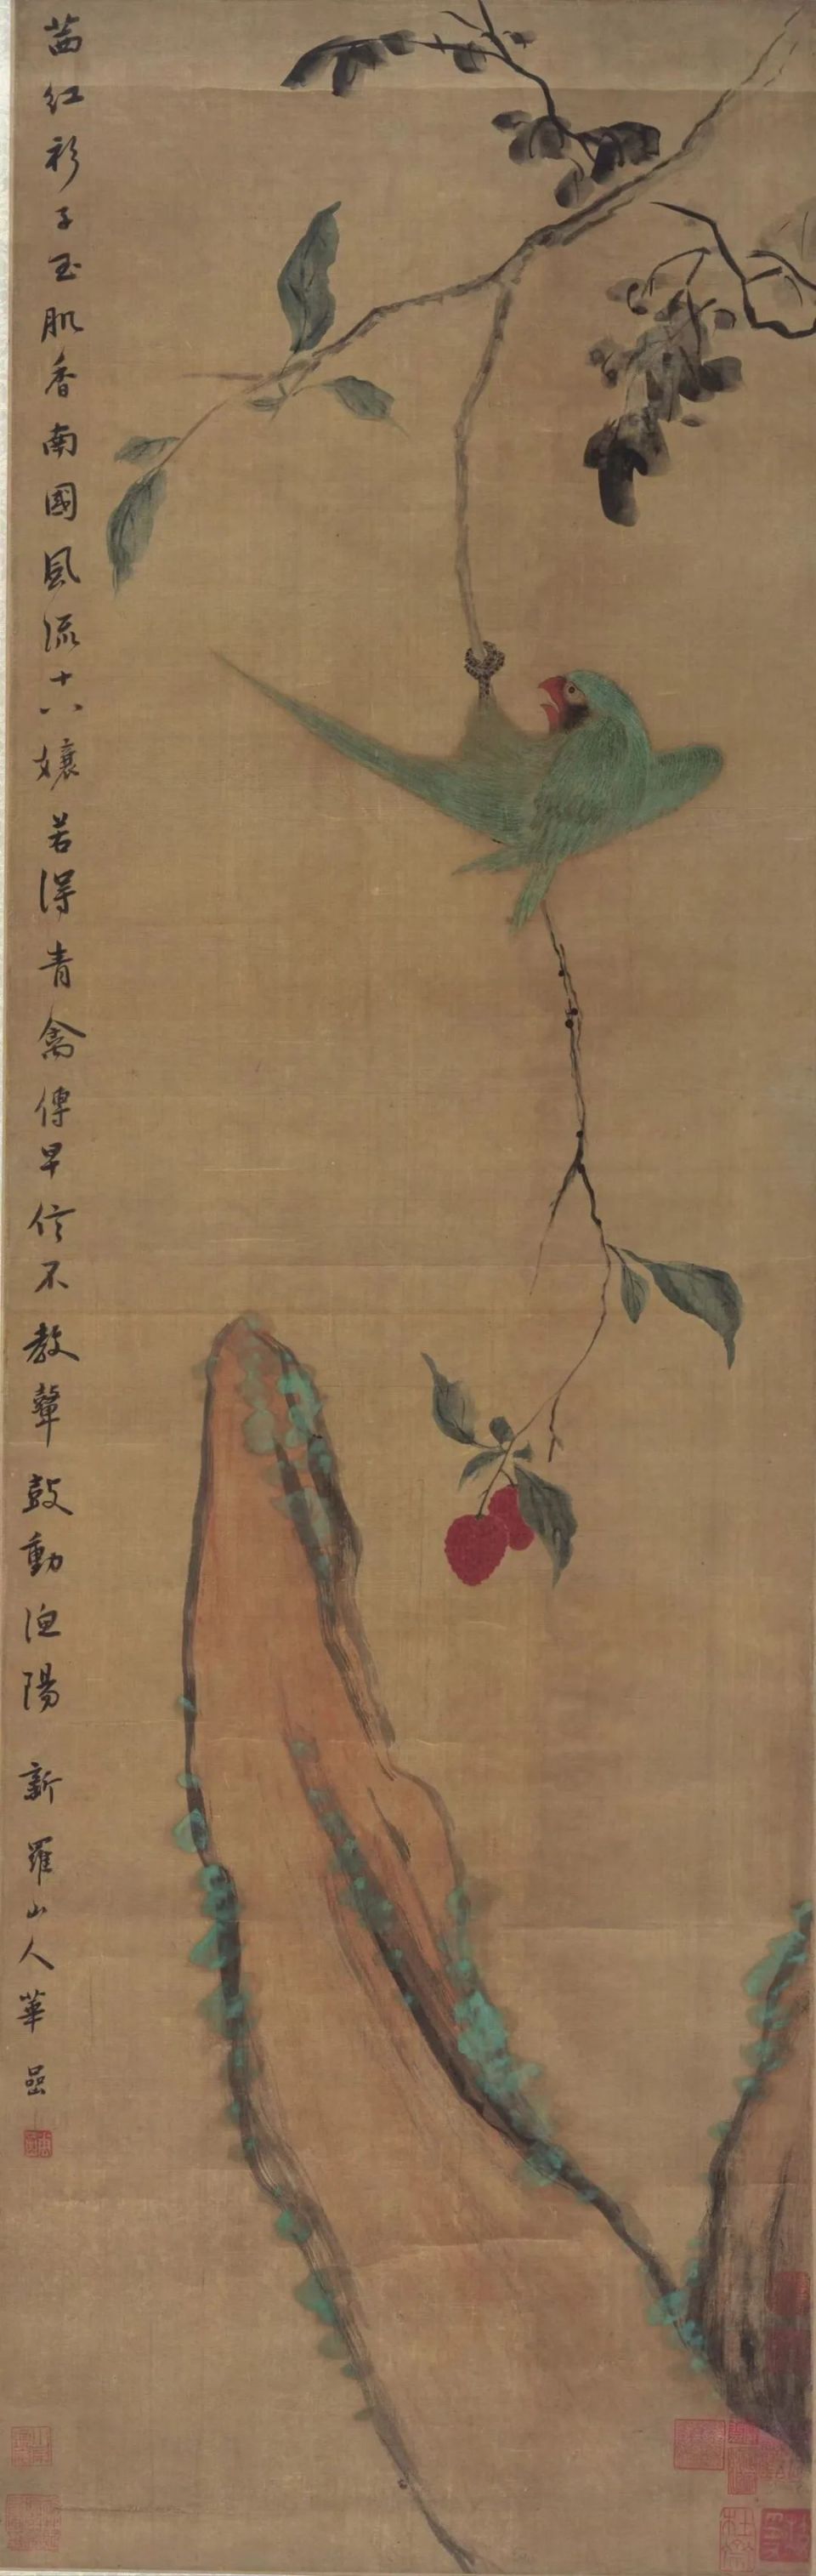 茜紅衫子玉肌香南國風流十八孃若得青禽傳早信不教鼙鼓動漁陽 新羅山人華喦